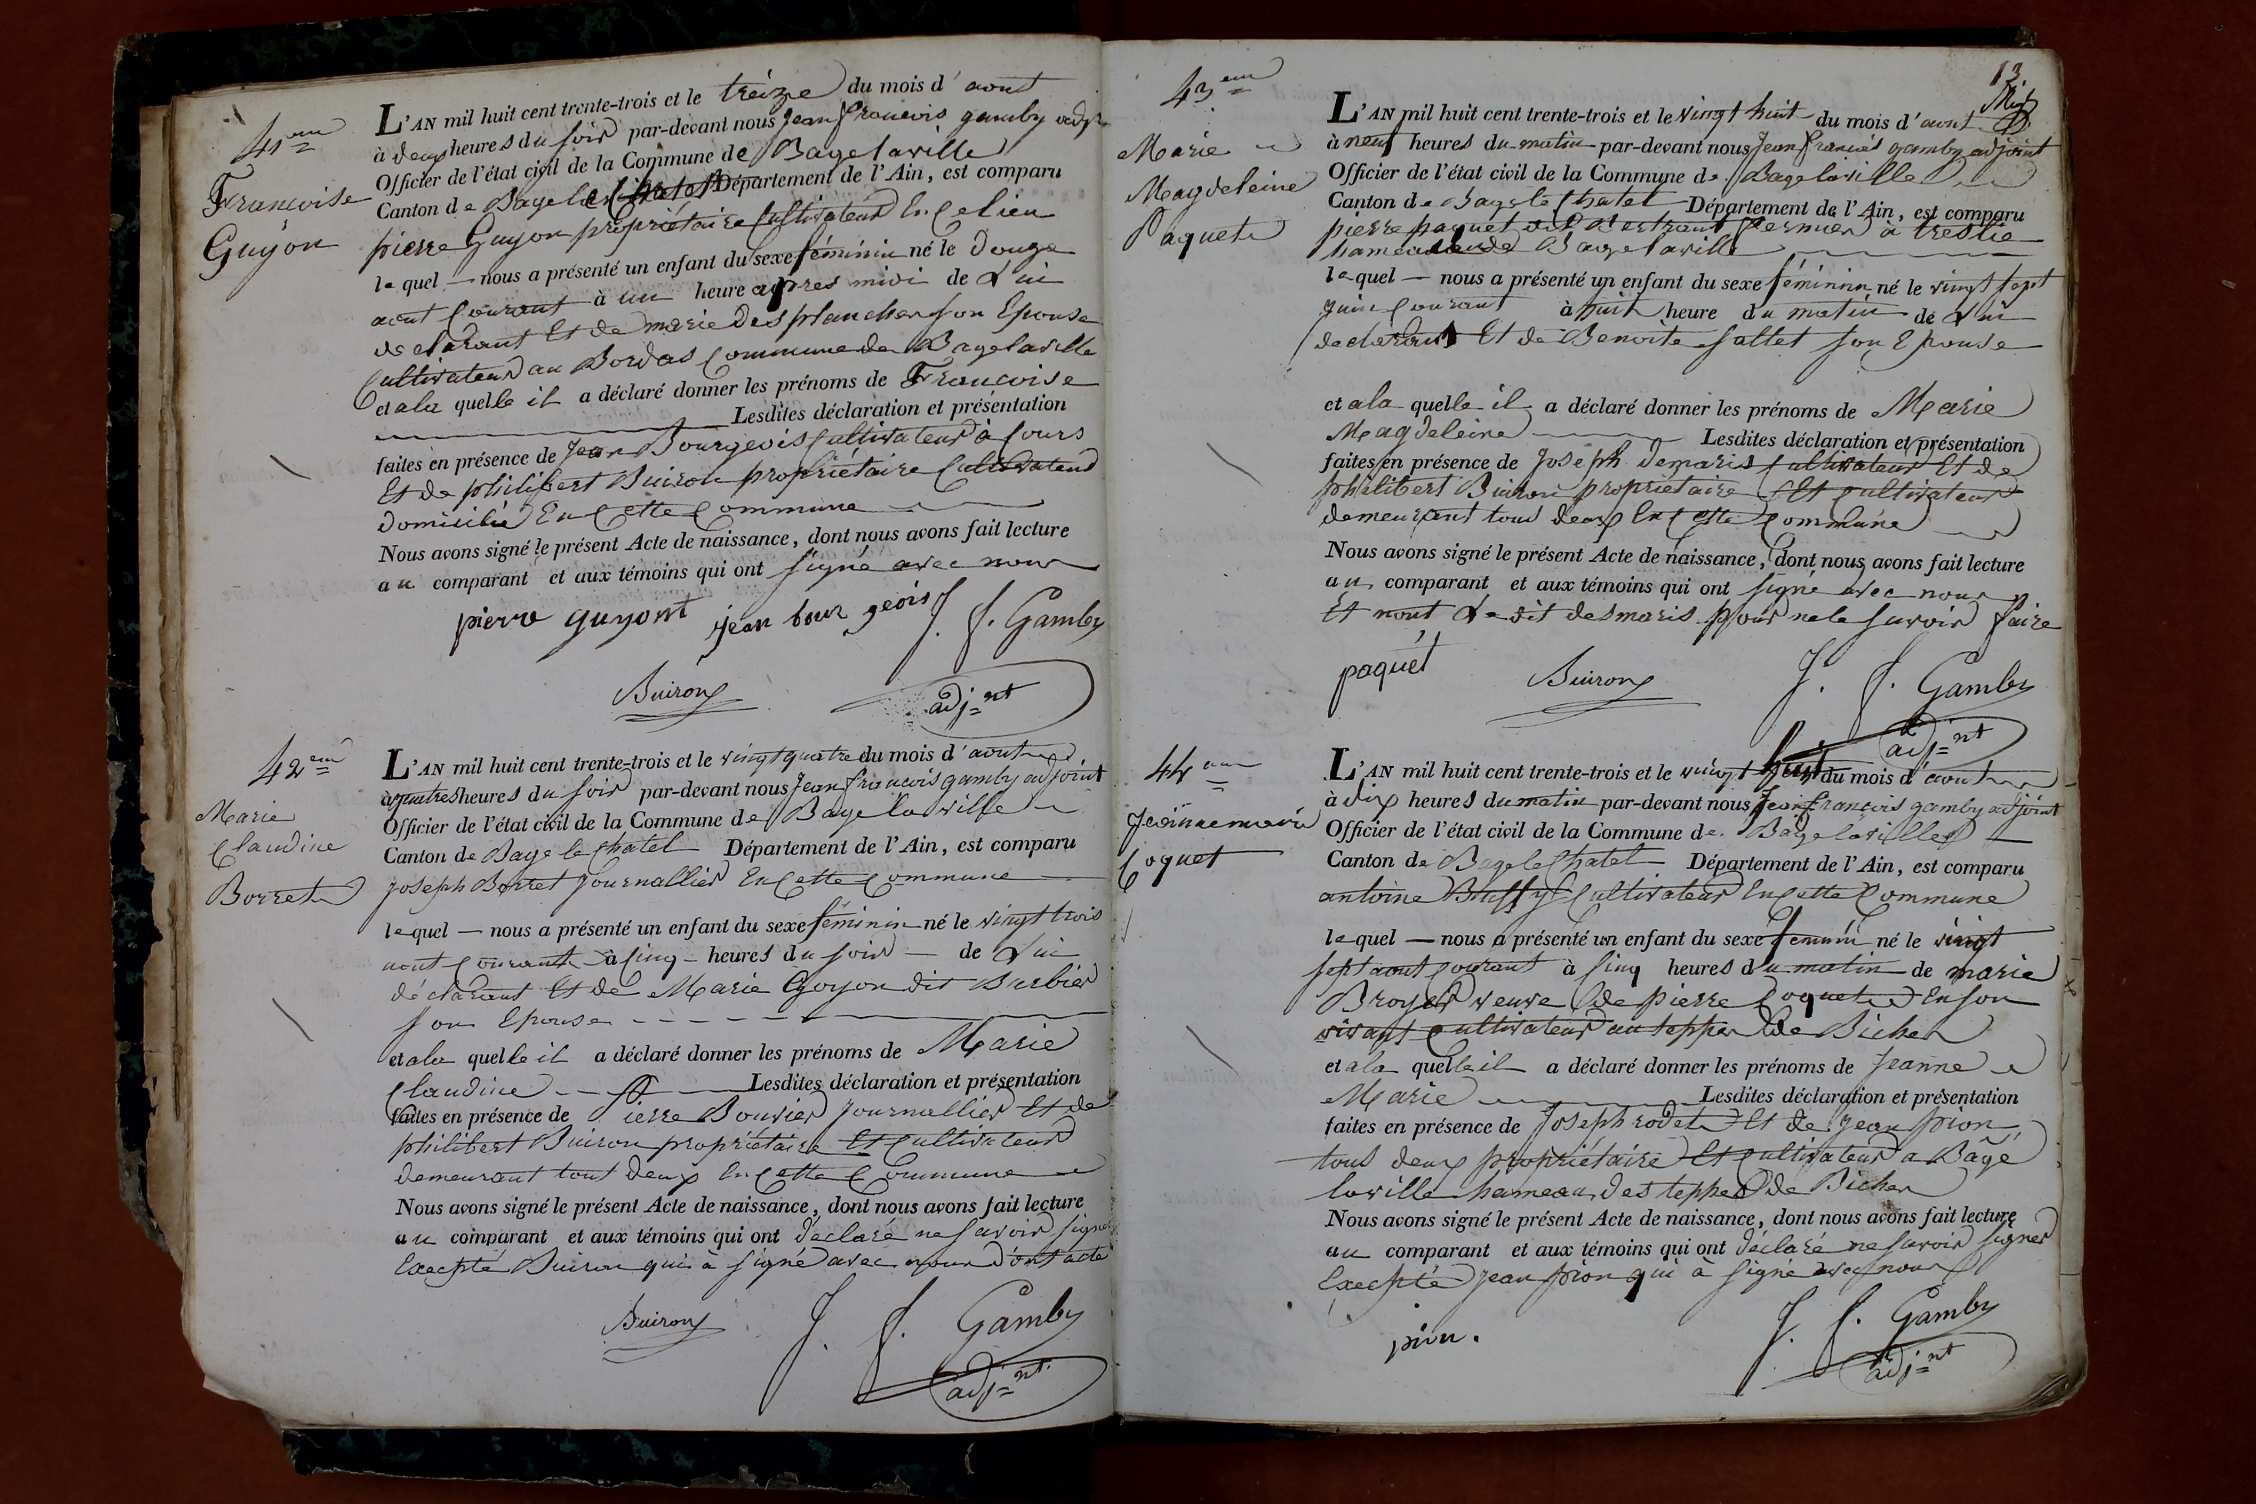 41em
Francoise
Guyon
L'AN mil huit cent trente-trois et le treize du mois d'aout
à deux heures du soir par-devant nous Jean francois gamby adj
Officier de l'état civil de la Commune de Bagelaville
Canton de Bage le Chatel Département de l'Ain, est comparu
pierre Guyon propriétaire Cultivateur En Ce lieu
le quel — nous a présenté un enfant du sexe féminin né le douze
aout Courant à un heure apres midi de Lui
declarant Et de marie Desplanches son Epouse
Cultivateur au Bordas Commune de Bagelaville
et a la quelle il a déclaré donner les prénoms de Francoise
Lesdites déclaration et présentation
faites en présence de Jean Bourgeois Cultivateur à
Et de philibert Buiron propriétaire Cultivateur
domicilié En Cette Commune
Nous avons signé le présent Acte de naissance, dont nous avons fait lecture
au comparant et aux témoins qui ont signé avec nous
pierre guyont jean bour geois J. f. Gamby
Buiron adj=nt
42em
Marie
Claudine
Borret
L'AN mil huit cent trente-trois et le vingt quatre du mois d'aout
à quatres heures du soir par-devant nous Jean francois gamby adjoint
Officier de l'état civil de la Commune de Bage laville
Canton de Bage le Chatel Département de l'Ain, est comparu
joseph Borret Journallier En Cette Commune
le quel — nous a présenté un enfant du sexe féminin né le vingt trois
aout Courant à Cinq heures du soir — de Lui
déclarant Et de Marie Goyon dit Burbier
son Epouse
et a la quelle il a déclaré donner les prénoms de Marie
Claudine Lesdites déclaration et présentation
faites en présence de Pierre Bouvier Journallier Et de
philibert Buiron propriétaire Et Cultivateur
demeurant tout deux En Cette Commune
Nous avons signé le présent Acte de naissance, dont nous avons fait lecture
au comparant et aux témoins qui ont déclaré ne savoir signer
Excepté Buiron qui à signé avec nous dont acte
Buiron J. f. Gamby
adj=nt
13
43em
Marie
Magdeleine
Paquet
L'AN mil huit cent trente-trois et le vingt huit du mois d'aout
à neuf heures du matin par-devant nous Jean francois gamby adjoint
Officier de l'état civil de la Commune de Bage laville
Canton de Bage le Chatel Département de l'Ain, est comparu
pierre paquet dit fermier à
hameau de Bage laville
le quel — nous a présenté un enfant du sexe féminin né le vingt sept
Courant à huit heure du matin de Lui
declarant Et de Benoite sallet son Epouse
et a la quelle il a déclaré donner les prénoms de Marie
Magdeleine Lesdites déclaration et présentation
faites en présence de Joseph demaris Cultivateur Et de
philibert Buiron propriétaire Et Cultivateur
demeurant tous deux En Cette Commune
Nous avons signé le présent Acte de naissance, dont nous avons fait lecture
au comparant et aux témoins qui ont signé avec nous
Et nont Le dit desmaris pour ne le savoir faire
paquet Buiron J. f. Gamby
adj=nt
44em
Jeanne marie
Coquet
L'AN mil huit cent trente-trois et le vingt huit du mois d'aout
à dix heures du matin par-devant nous Jean francois gamby adjoint
Officier de l'état civil de la Commune de Bage laville
Canton de Bage le Chatel Département de l'Ain, est comparu
antoine Buffy Cultivateur En Cette Commune
le quel — nous a présenté un enfant du sexe feminin né le vingt
sept aout courant à Cinq heures du matin de marie
Broyer veuve de pierre Coquet En son
vivant Cultivateur au teppes de Biches
et a la quelle il a déclaré donner les prénoms de Jeanne
Marie Lesdites déclaration et présentation
faites en présence de Joseph rodet Et de Jean pion
tous deux propriétaire Et Cultivateur a Bâgé
laville hameau des teppes de Biches
Nous avons signé le présent Acte de naissance, dont nous avons fait lecture
au comparant et aux témoins qui ont déclaré ne savoir signer
Excepté Jean pion qui à signé avec nous
pion. J. f. Gamby
adj=nt